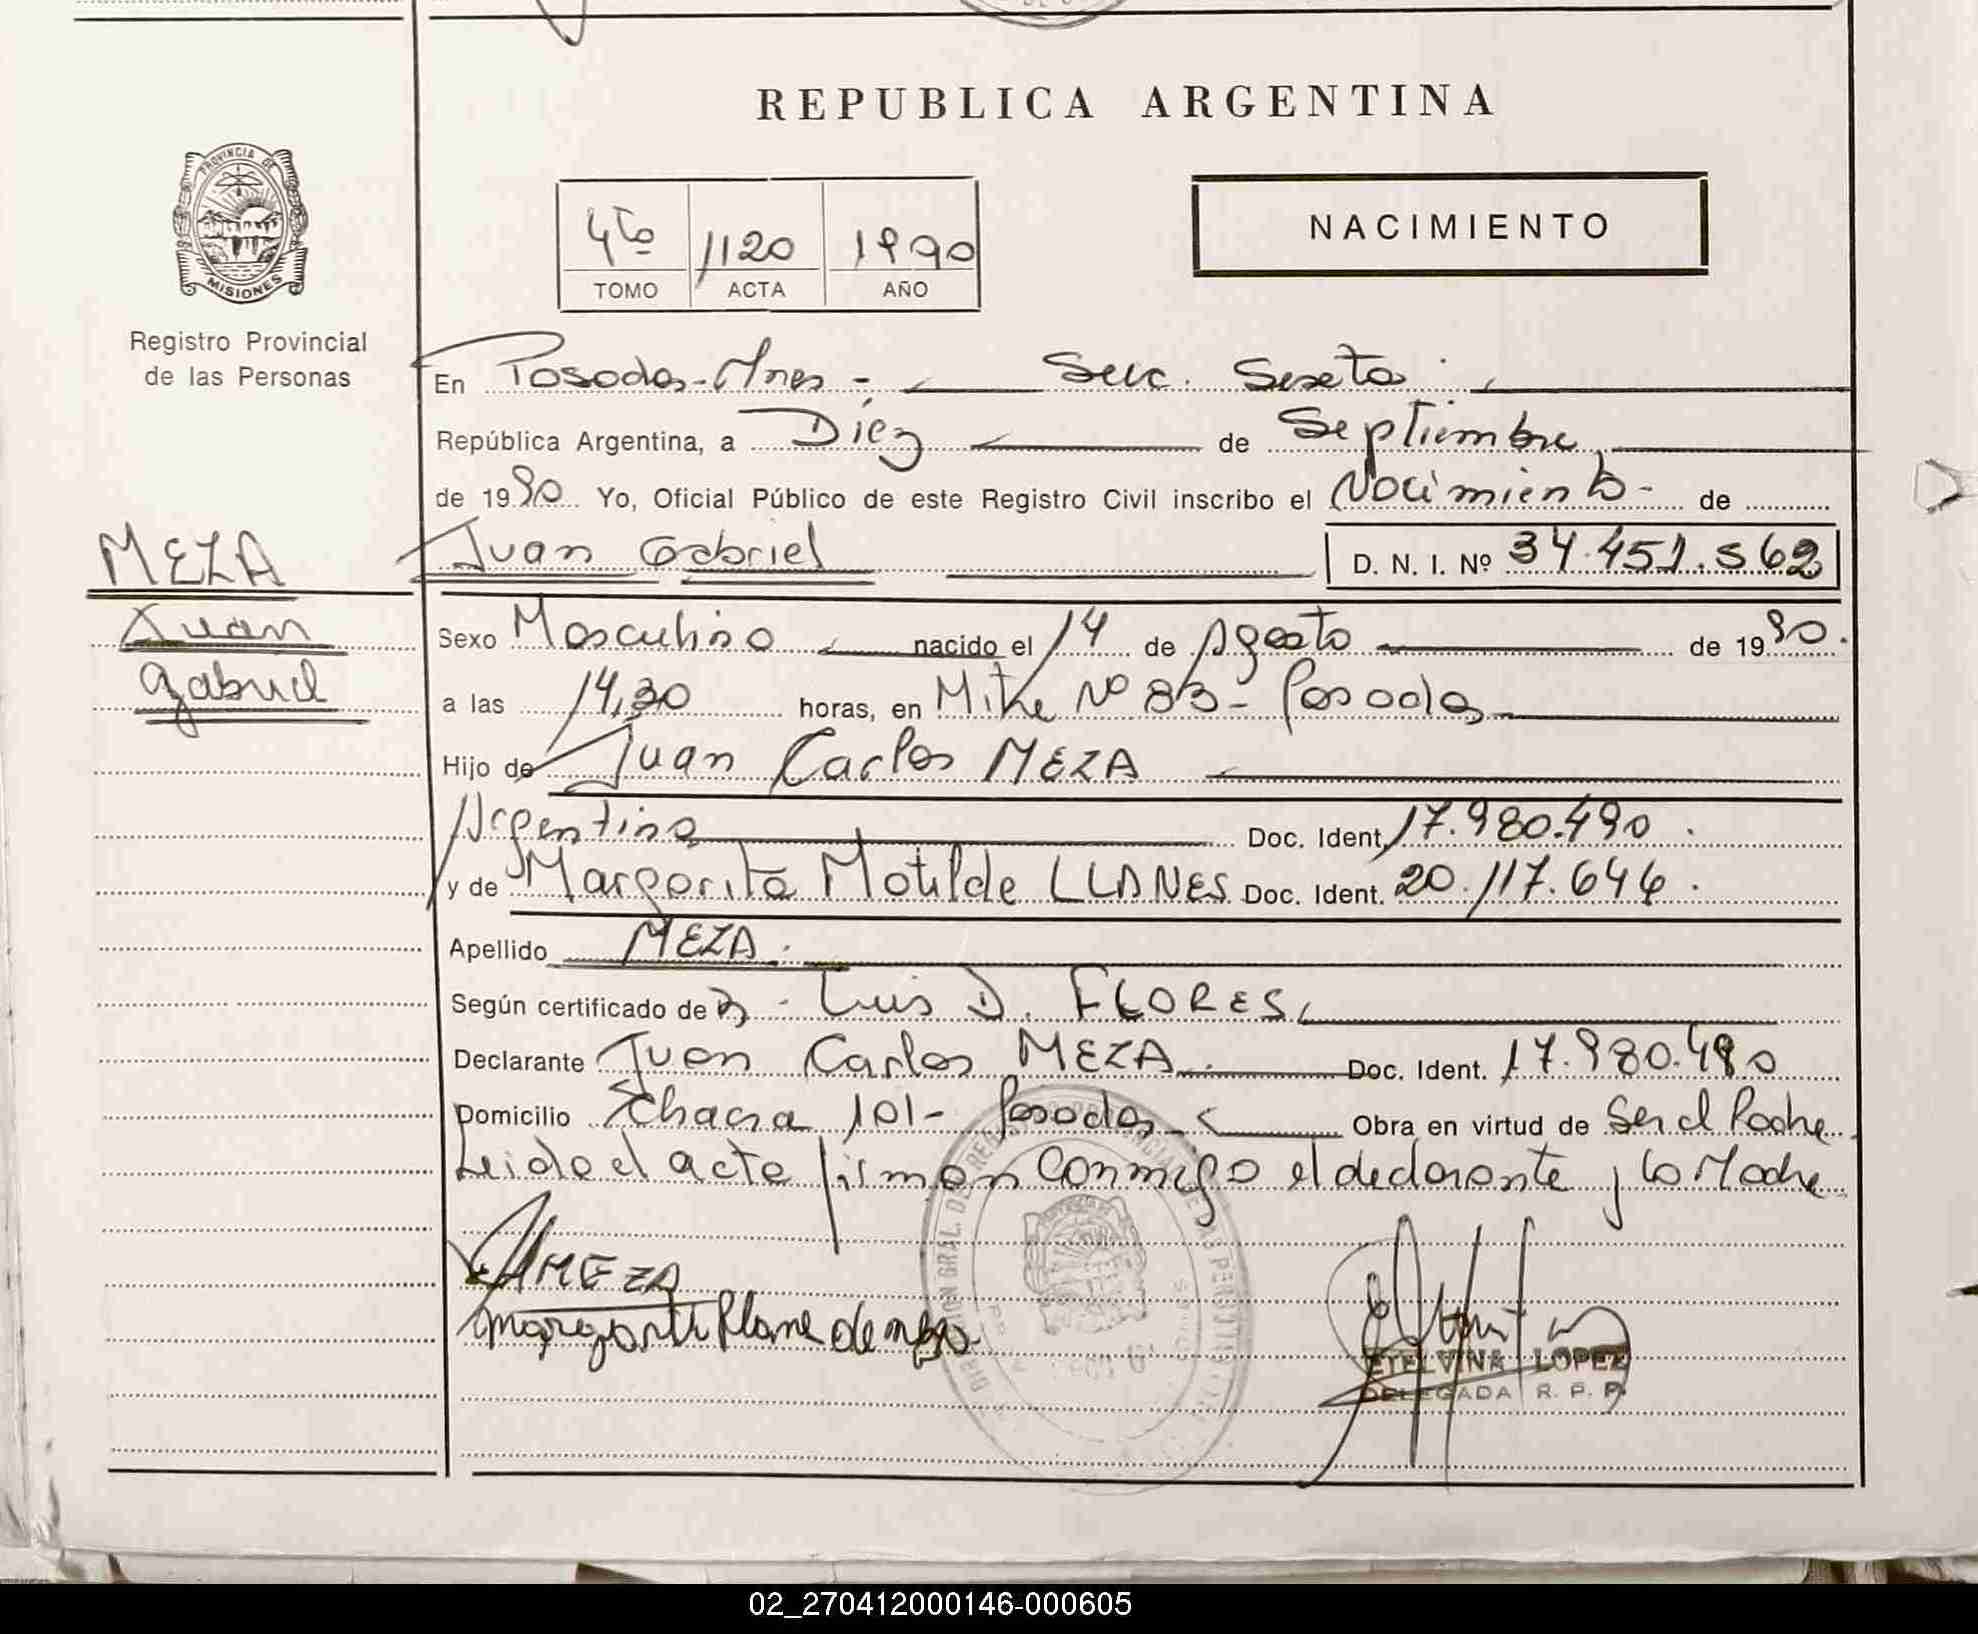 REPUBLICA ARGENTINA
PROVINCIA DE
MISIONES
Registro Provincial
de las Personas
4to 1120 1990
TOMO ACTA AÑO
NACIMIENTO
En Posadas-Mnes - Secc. Sexta
República Argentina, a Diez de Septiembre
de 1990 Yo, Oficial Público de este Registro Civil inscribo el Nacimiento - de
MEZA
Juan
Gabriel
Juan Gabriel D. N. I. Nº 34.451.562
Sexo Masculino nacido el 14 de Agosto de 1990.
a las 14,30 horas, en Mitre Nº 83 - Posadas
Hijo de Juan Carlos MEZA
Argentino Doc. Ident. 17.980.490.
y de Margarita Matilde LLANES Doc. Ident. 20.117.644.
Apellido MEZA.
Según certificado de Luis D. FLORES
Declarante Juan Carlos MEZA. Doc. Ident. 17.980.490
Domicilio Chacra 101 - Posadas Obra en virtud de Ser el Padre
Leida el acta firman conmigo el declarante y la Madre
MEZA
ETELVINA LOPEZ
DELEGADA R. P. P.
02_270412000146-000605